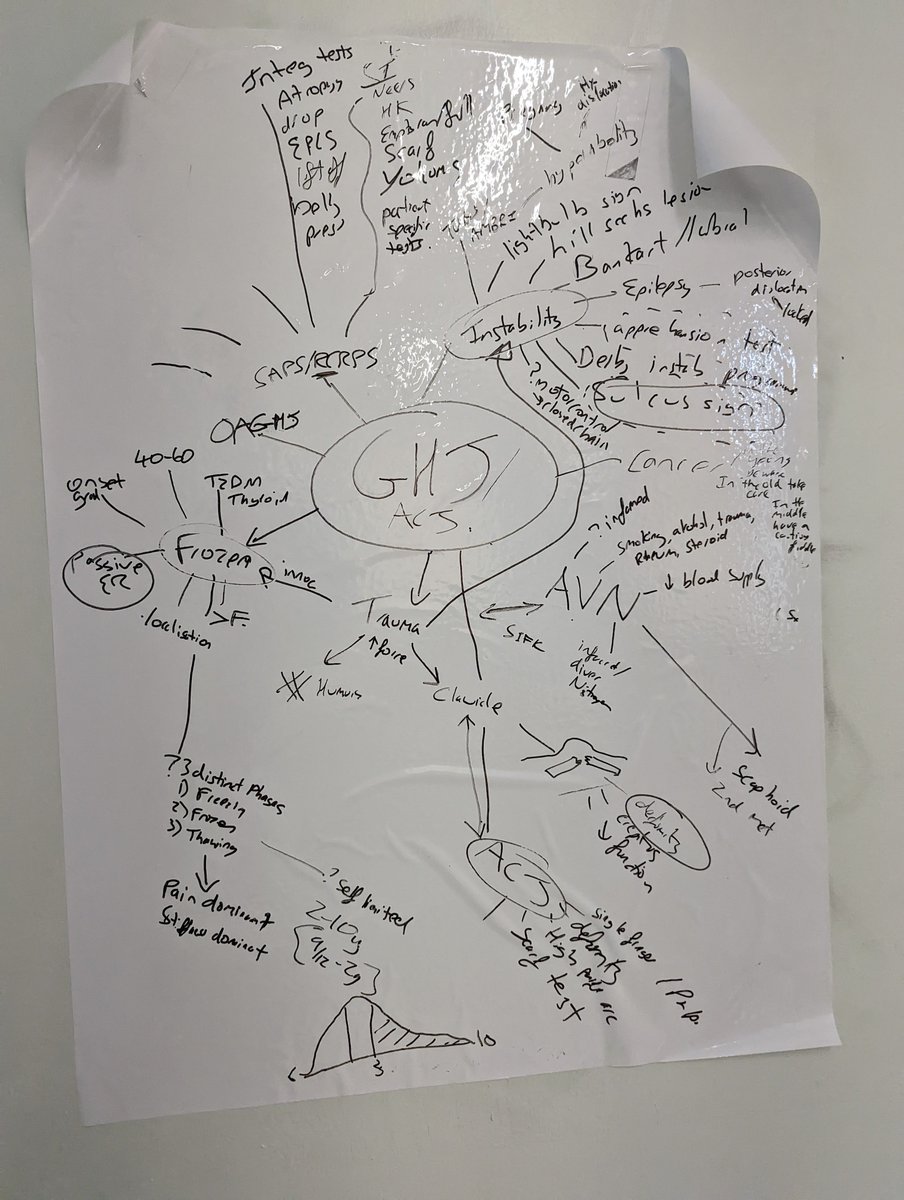 Integ tests
Atropy
drop
EPLS
lift off
belly
press
SI
Neers
HK
Empty can/full
Scarf
Yocums
patient
specific
tests.
Hx
dislocation
hypermobility
AMBRI
lightbulb sign
hill sachs lesion
Bankart / labral
Instability
Epilepsy — posterior
dislocation
locked
apprehension test
Derby instab programme
Sulcus sign
? motor control
→ closed chain
SAPS/RCRPS
OAGHJ
GHJ/
ACJ.
Cancer/
In the old take
care
In the
middle
have a
40-60
onset
grad
T2DM
Thyroid
Frozen
Passive
ER
>F.
localisation
immo
Trauma
↑force
Humerus
Clavicle
AVN
? infarmed
smoking, alcohol, trauma,
steroid
↓ blood supply
SIFK
infarct/
diver
Nitrogen
scaphoid
2nd met
deformity
crepitus
↓ function
ACJ
single finger
deformity
High painful arc
scarf test
/ Palp.
? 3 distinct phases
1) Freezin
2) Frozen
3) Thawing
Pain dominant
Stiffness dominant
? Self limited
2-10y
9/12-2y
3
10